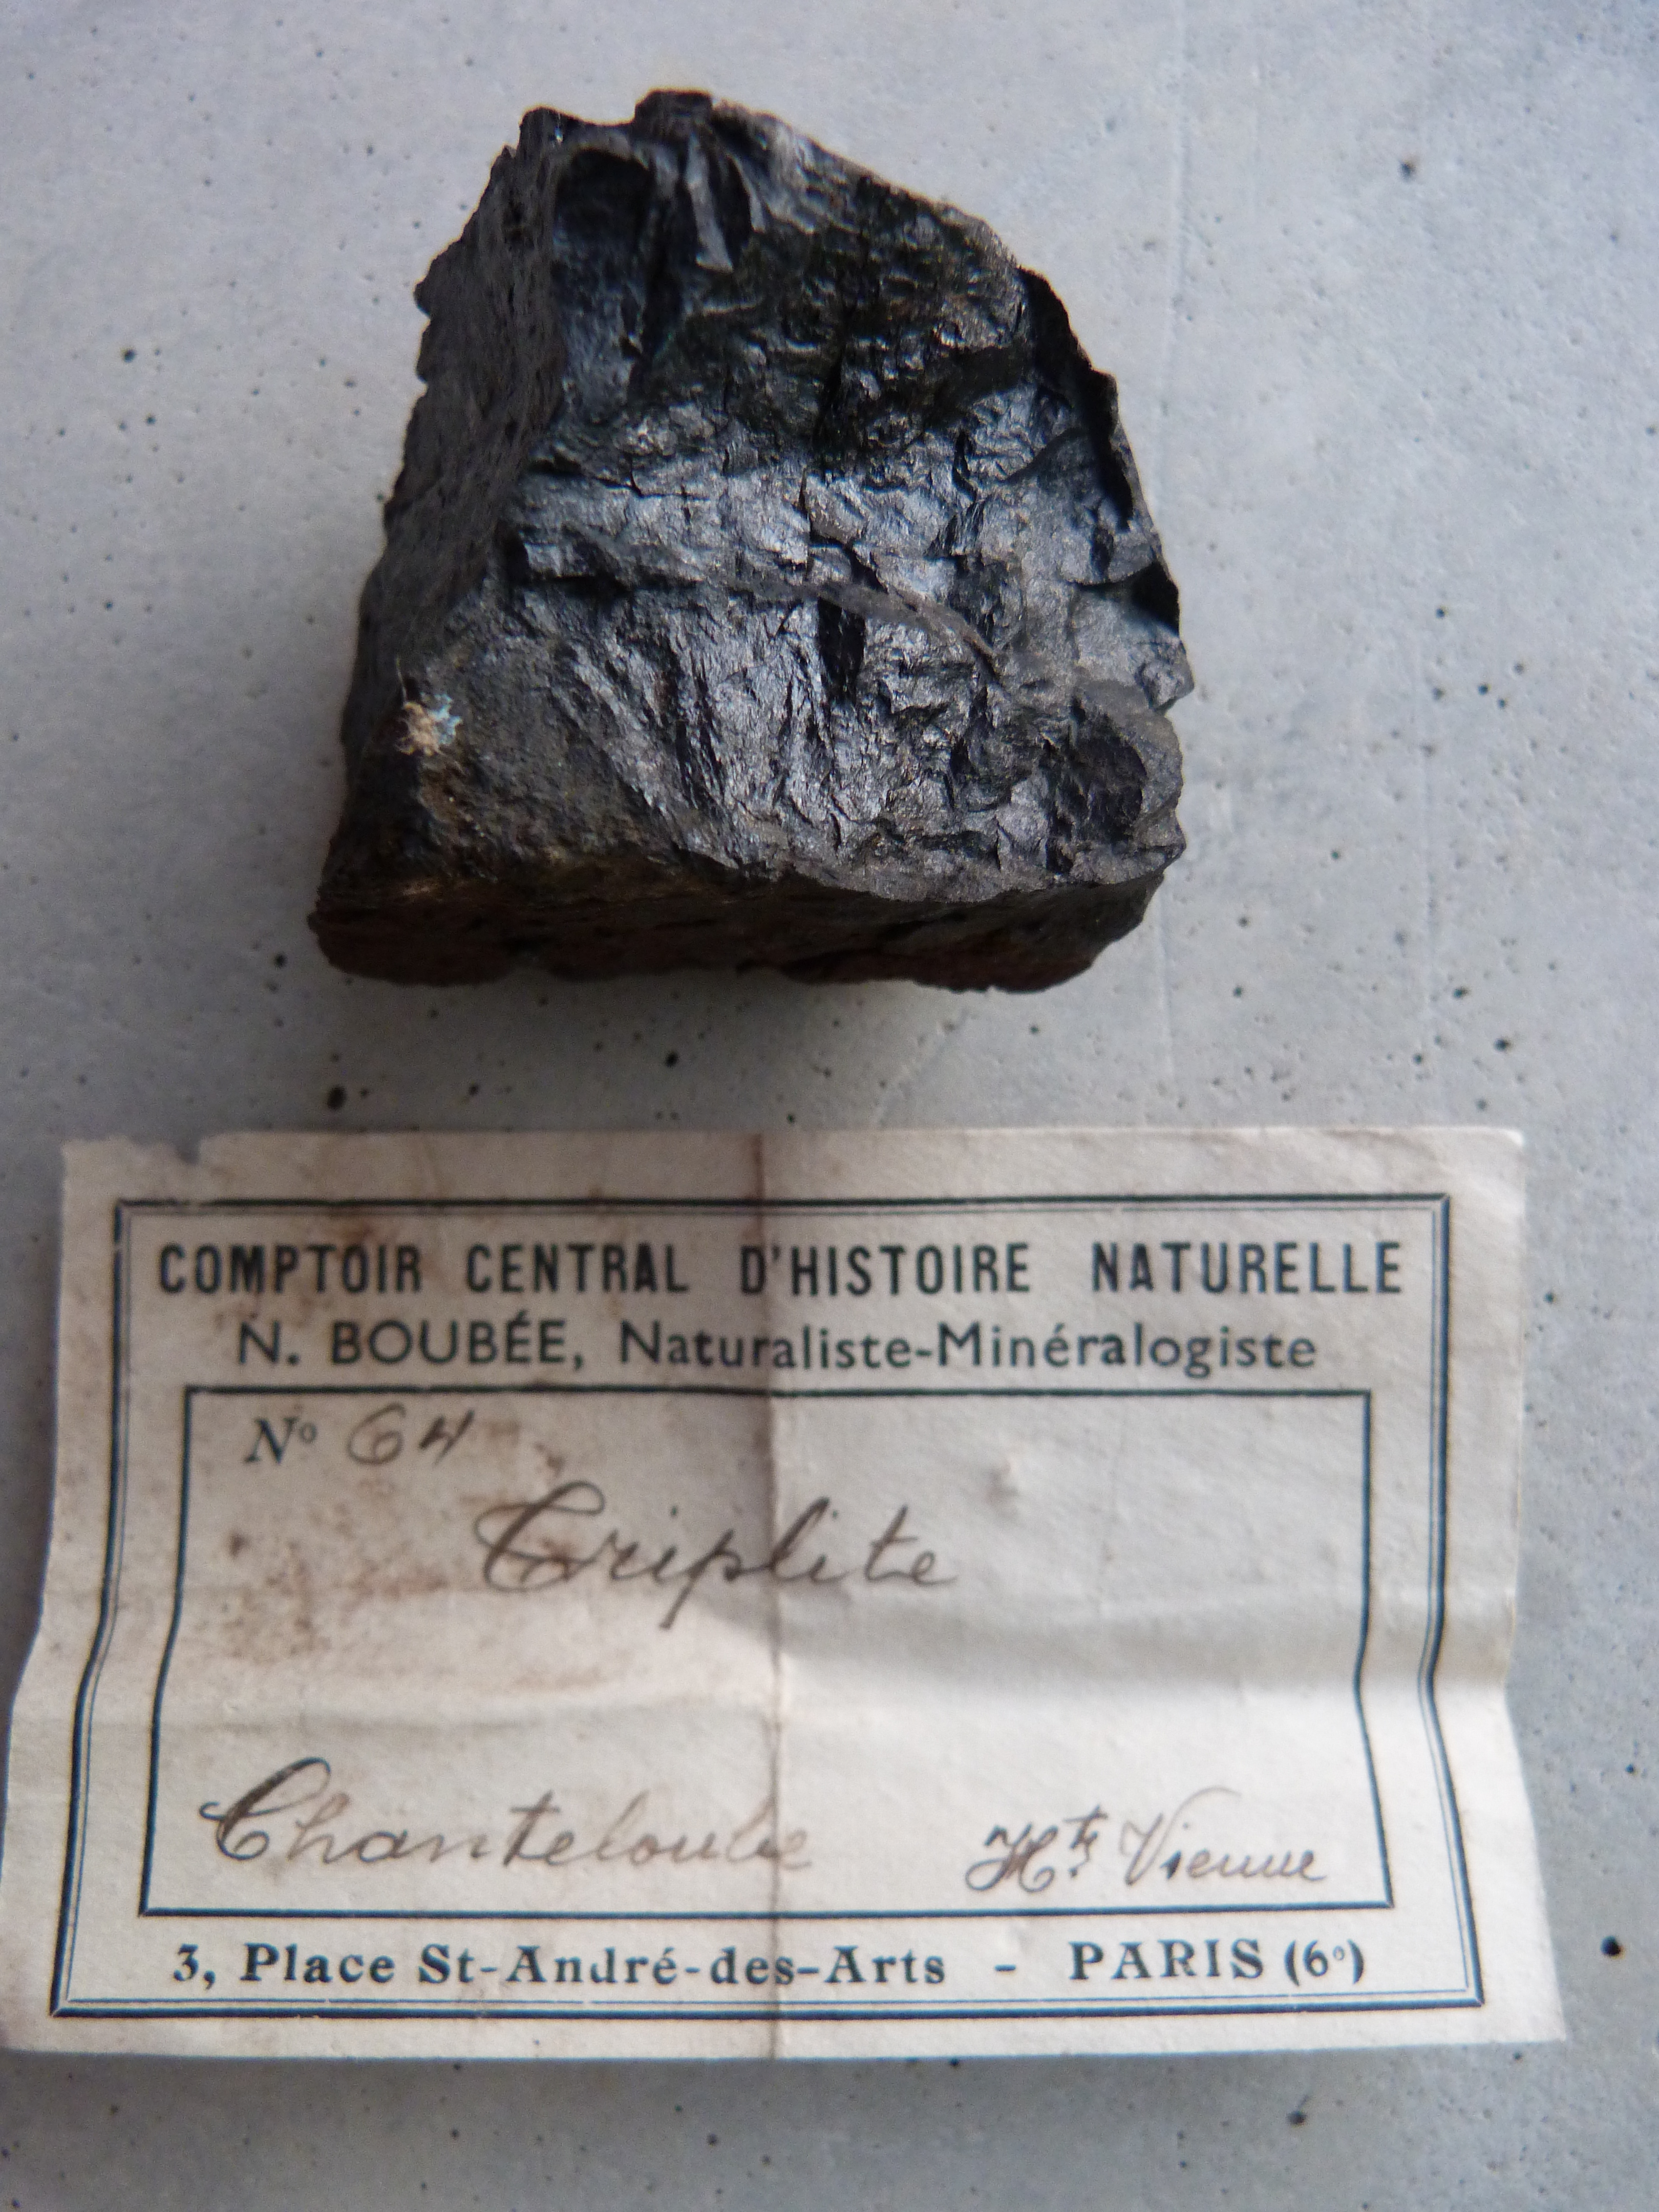 COMPTOIR CENTRAL D'HISTOIRE NATURELLE
N. BOUBÉE, Naturaliste-Minéralogiste
Nº 64
Triplite
Chanteloube Hte Vienne
3, Place St-André-des-Arts - PARIS (6e)